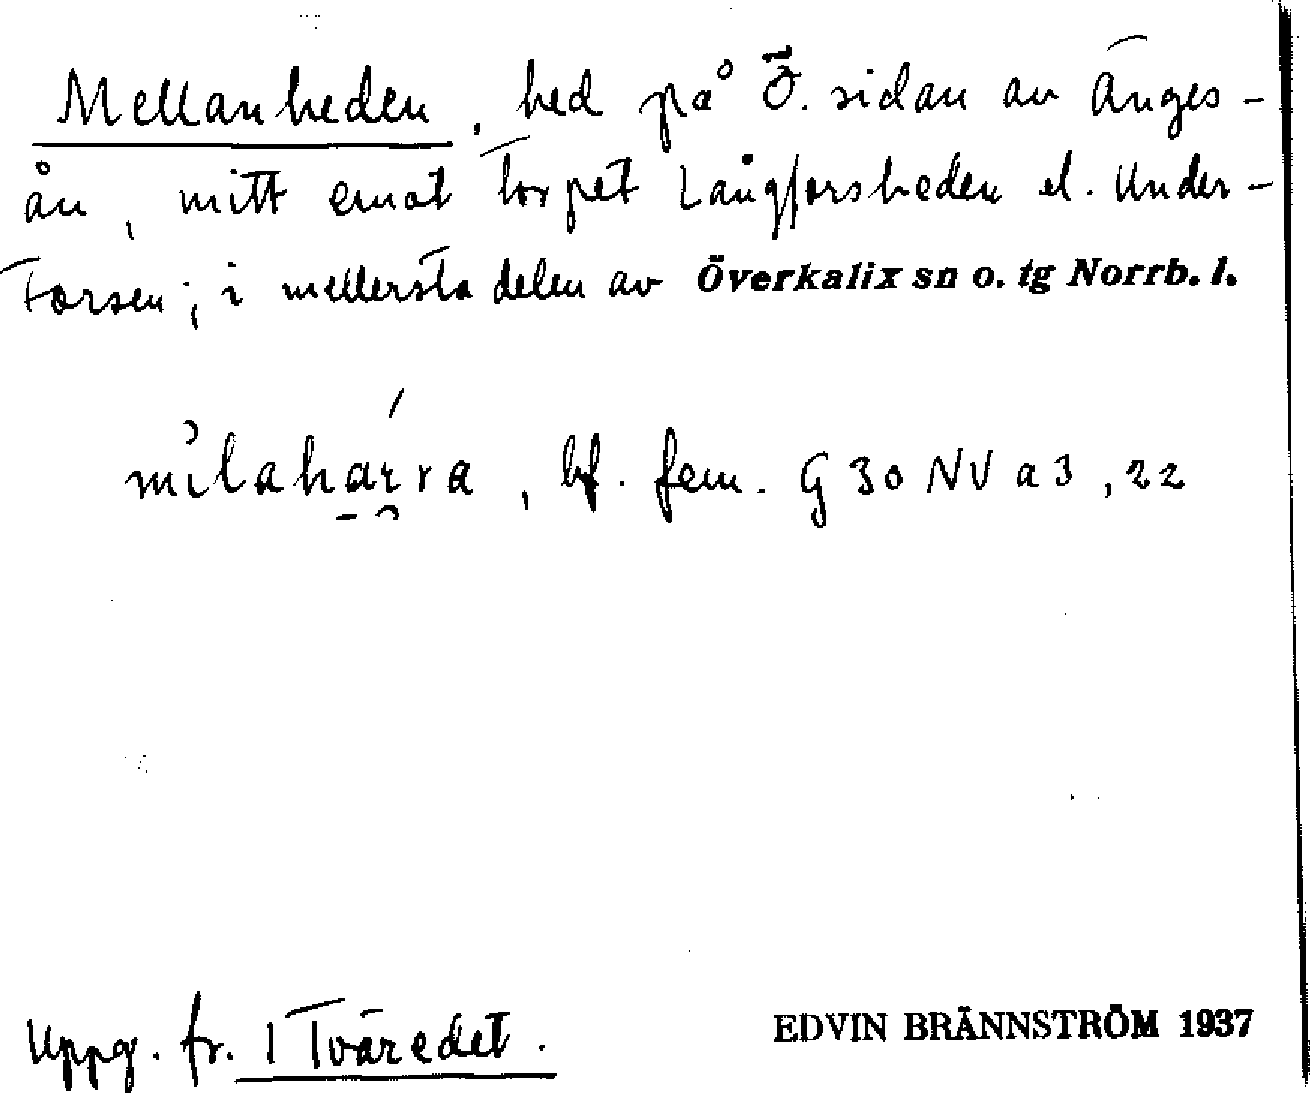 Mellanheden, hed på Ö. sidan av Änges-
ån, mitt emot torpet Långforsheden el. Under-
forsen; i mellersta delen av Överkalix sn o. tg Norrb. l.
bf. fem. G 30 NV a 3, 22
Uppg. fr. 1 Tväredet.
EDVIN BRÄNNSTRÖM 1937